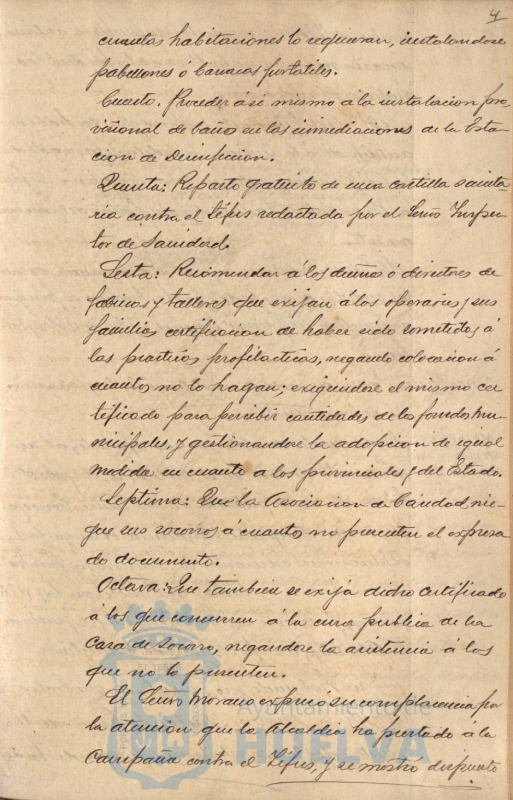 4
cuantas habitaciones lo requieran, instalandose
pabellones ó barracas portatiles.
Cuarto. Proceder ási mismo á la instalacion pro-
visional de baño en las inmediaciones de la Esta-
cion de Desinfeccion.
Quinta: Reparto gratuito de una cartilla sanita-
ria contra el Tífus redactada por el Señor Inspec-
tor de Sanidad.
Sesta: Recomendar á los dueños ó directores de
fabricas y talleres que exijan á los operarios y sus
familias certificacion de haber sido sometidos á
las practicas profilacticas, negando colocacion á
cuantos no lo hagan; exigiendose el mismo cer-
tificado para percibir cantidades de los fondos mu-
nicipales, y gestionandose la adopcion de igual
medida en cuanto a los provinciales y del Estado.
Septima: Que la Asociacion de Caridad, nie-
gue sus socorros á cuantos no presenten el expresa-
do documento.
Octava: Que tambien se exija dicho certificado
á los que concurren á la cura publica de la
Casa de Socorro, negandose la asistencia á los
que no lo presenten.
El Señor Morano expresó su complacencia por
la atencion que la Alcaldia ha prestado á la
Campaña contra el Tífus, y se mostró dispuesto
Ayuntamiento de
HUELVA